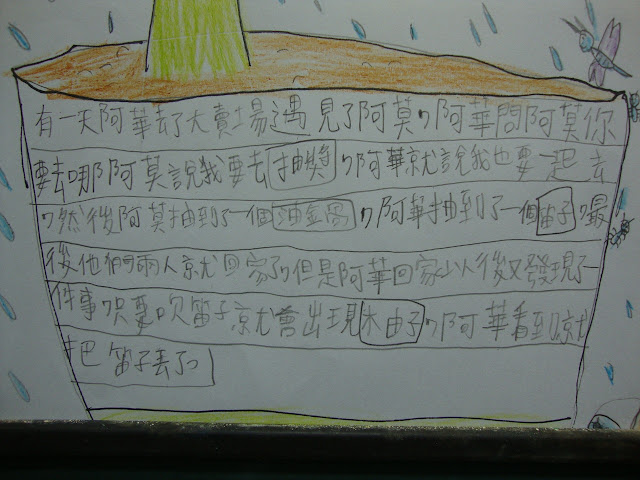 有一天阿華去了大賣場遇見了阿莫,阿華問阿莫你
要去哪阿莫說我要去抽獎,阿華就說我也要一起去
,然後阿莫抽到了一個油金陽,阿華抽到了一個笛子,最
後他們兩人就回家了,但是阿華回家以後又發現了一
件事,只要吹笛子就會出現木由子,阿華看到京尤
把笛子丟了。